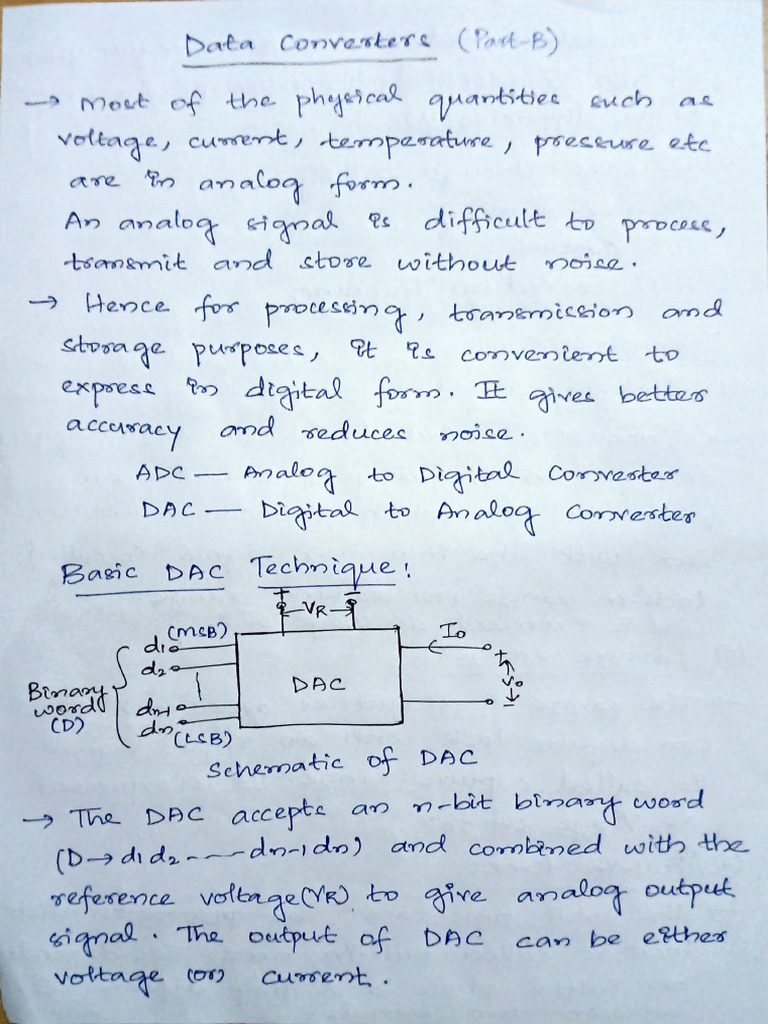 Data Converters (Part-B)
→ Most of the physical quantities such as
voltage, current, temperature, pressure etc
are in analog form.
An analog signal is difficult to process,
transmit and store without noise.
→ Hence for processing, transmission and
storage purposes, it is convenient to
express in digital form. It gives better
accuracy and reduces noise.
ADC — Analog to Digital Converter
DAC — Digital to Analog Converter
Basic DAC Technique:
+ VR −
d1 (MSB)
d2
dn-1
dn (LSB)
Binary
word
(D)
DAC
Io
+
Vo
−
Schematic of DAC
→ The DAC accepts an n-bit binary word
(D→d1d2----dn-1dn) and combined with the
reference voltage(VR) to give analog output
signal. The output of DAC can be either
voltage (or) current.